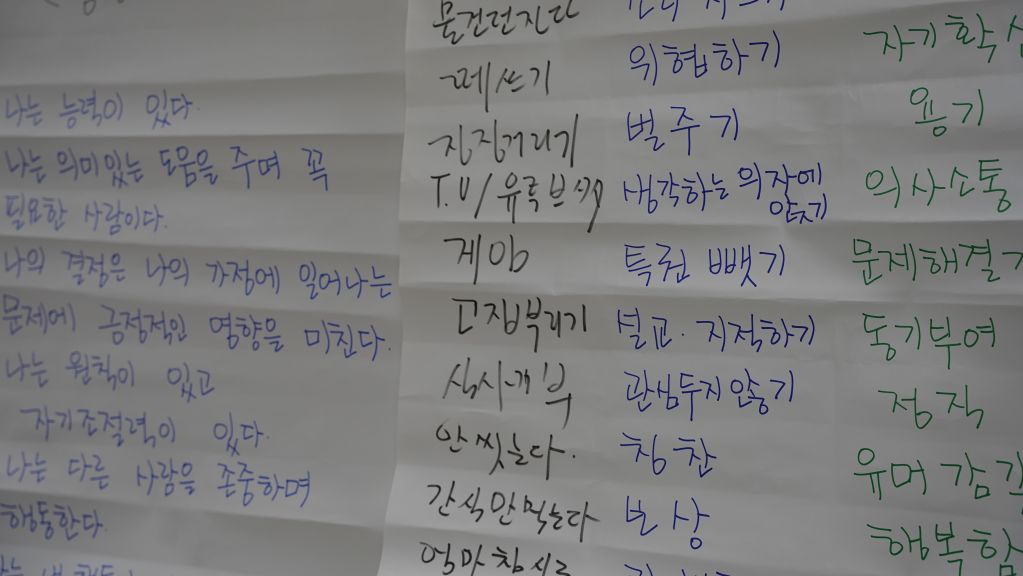 나는 능력이 있다.
나는 의미있는 도움을 주며 꼭
필요한 사람이다.
나의 결정은 나의 가정에 일어나는
문제에 긍정적인 영향을 미친다.
나는 원칙이 있고
자기조절력이 있다.
나는 다른 사람을 존중하며
행동한다.
물건던진다
떼쓰기
징징거리기
T.V/유튜브
게임
고집부리기
식사거부
안씻는다.
간식만먹는다
위협하기
벌주기
생각하는 의자에
앉기
특권 뺏기
설교·지적하기
관심두지않기
칭찬
보상
자기확신
용기
의사소통
문제해결
동기부여
정직
유머감각
행복함